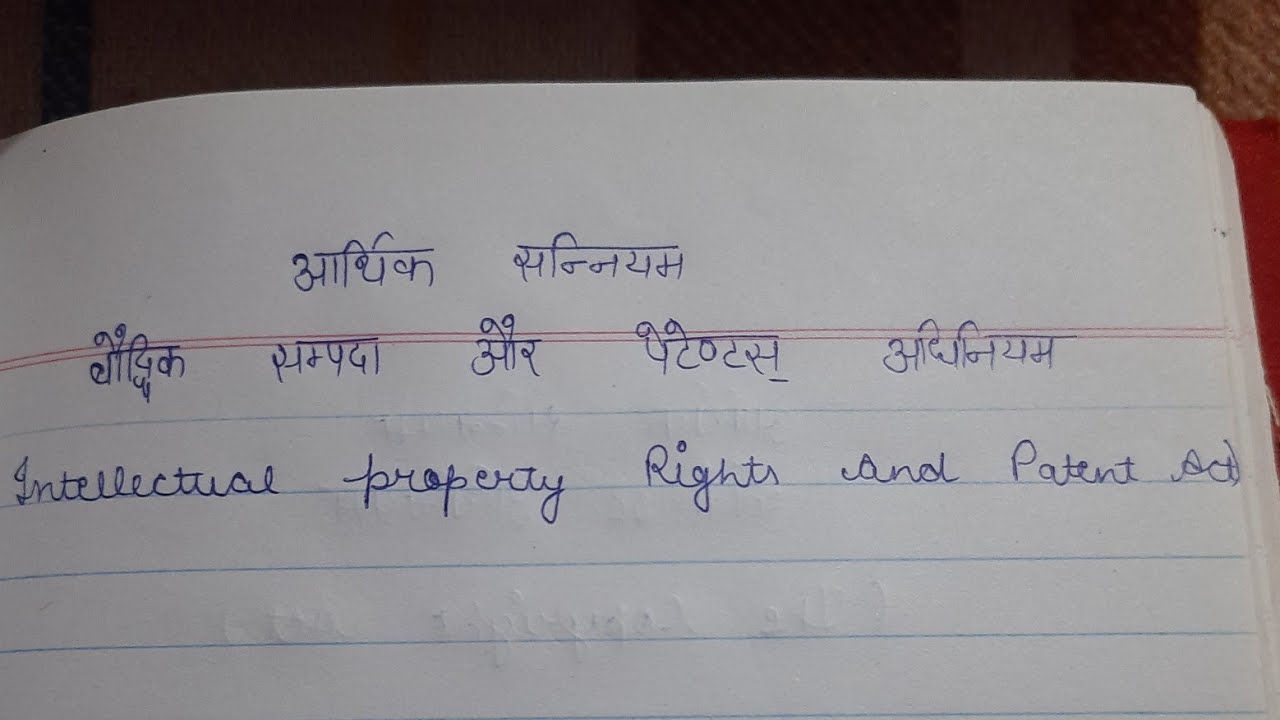 आर्थिक सन्नियम
बौद्धिक सम्पदा और पेटेण्टस् अधिनियम
Intellectual property Rights and Patent Act)